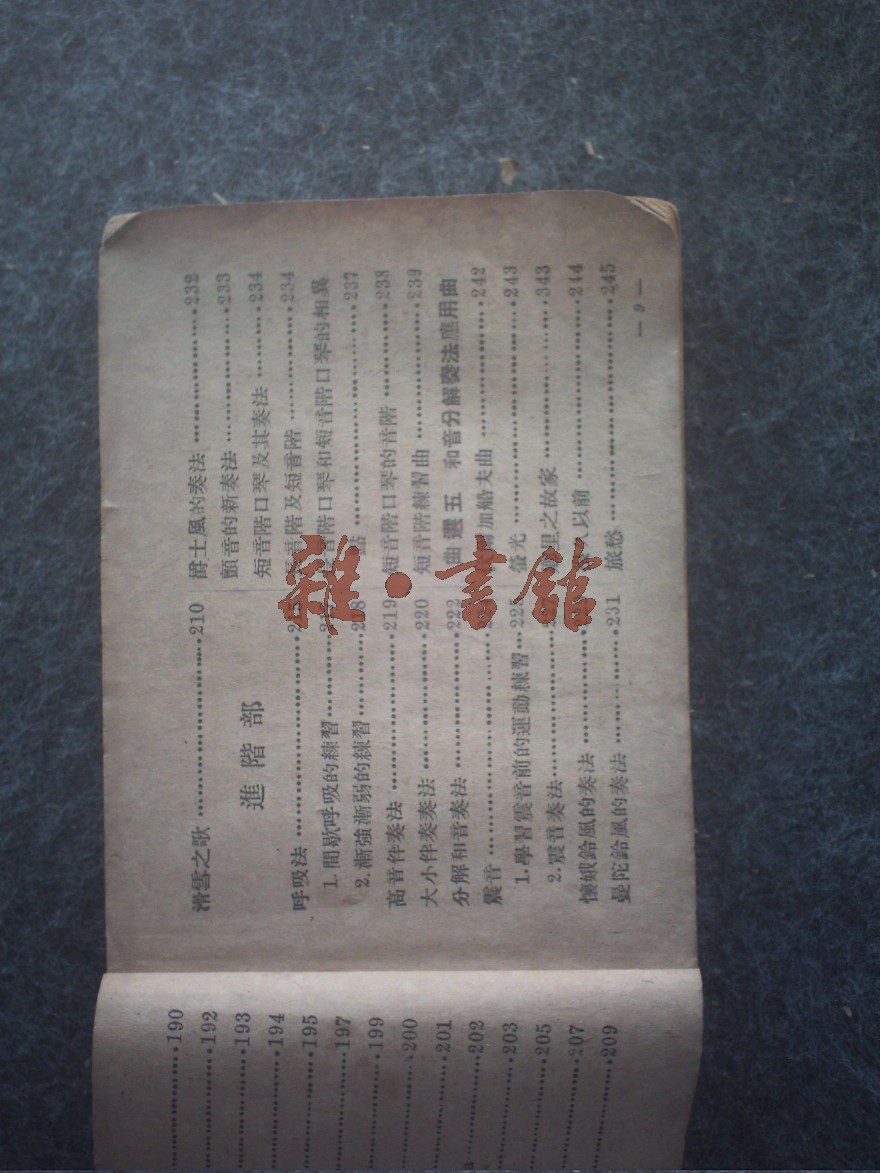 190
192
193
194
195
197
199
200
201
202
203
205
207
209
滑雪之歌 210
進階部
呼吸法
1. 間歇呼吸的練習
2. 漸強漸弱的練習
高音伴奏法 219
大小伴奏奏法 220
分解和音奏法 222
震音
1. 學習震音前的運動練習
2. 震音奏法
懷娥鈴風的奏法
曼陀鈴風的奏法 231
爵士風的奏法 232
顫音的新奏法 233
短音階口琴及其奏法 234
音階及短音階 234
音階口琴和短音階口琴的相異
點 237
短音階口琴的音階 238
短音階練習曲 239
曲選五 和音分解奏法應用曲
加船夫曲 242
螢光 243
里之故家 343
久以前 244
旅愁 245
— 9 —